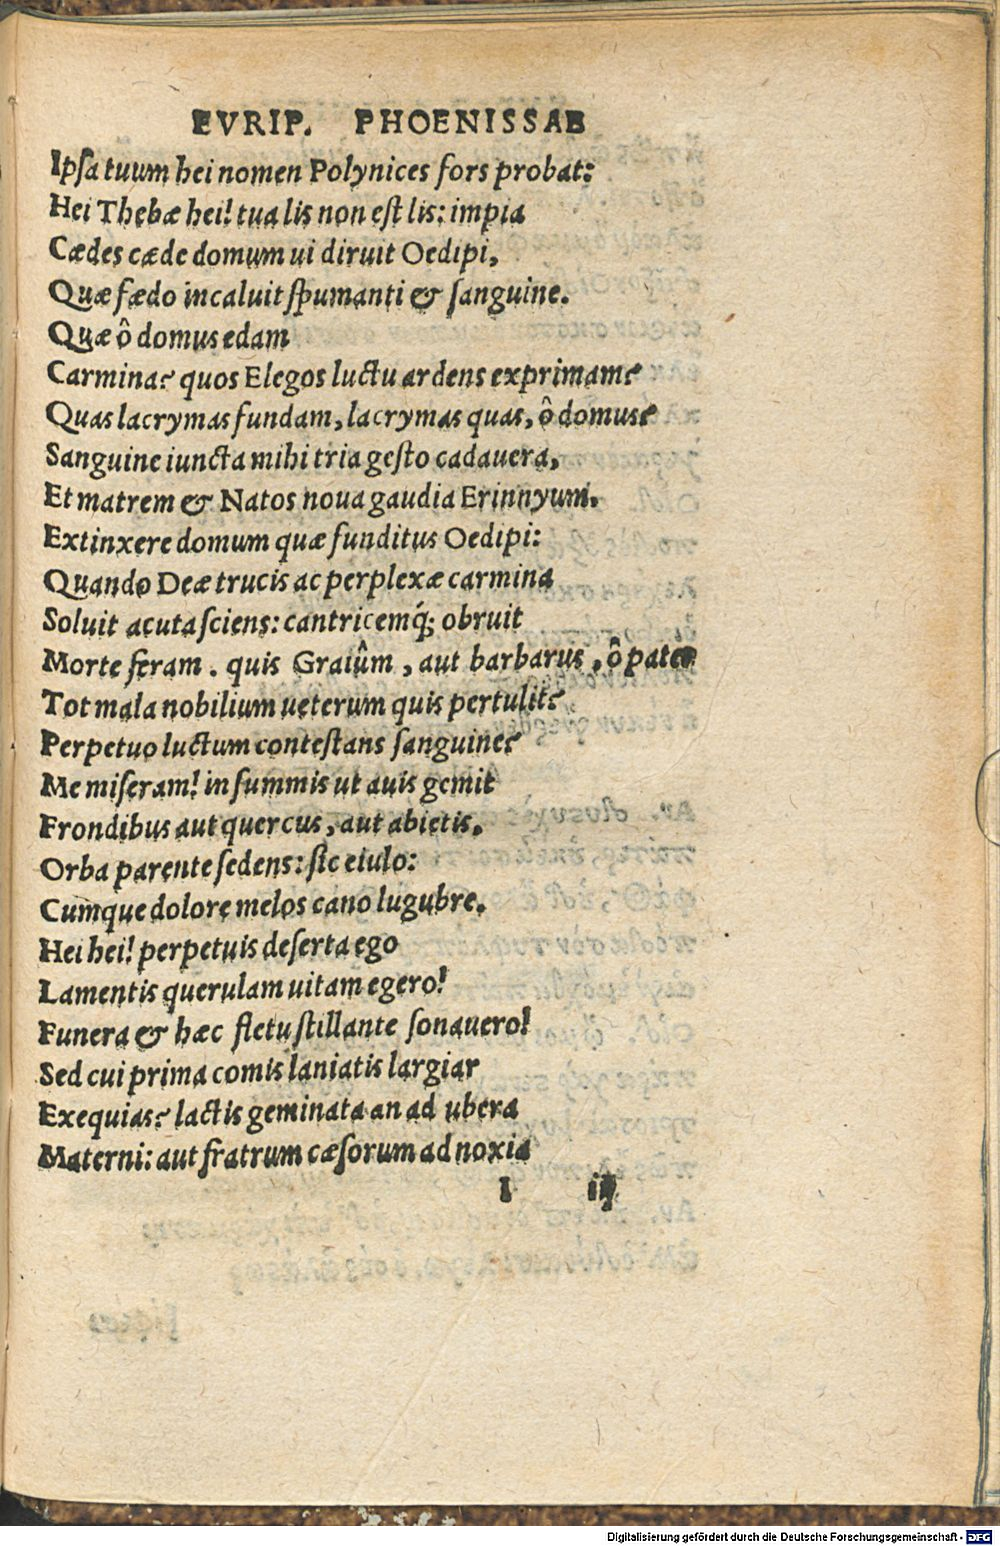 EVRIP. PHOENISSAE
Ipsa tuum hei nomen Polynices fors probat:
Hei Thebæ hei! tua lis non est lis: impia
Cædes cæde domum ui diruit Oedipi,
Quæ fædo incaluit spumanti & sanguine.
Quæ ô domus edam
Carmina? quos Elegos luctu ardens exprimam?
Quas lacrymas fundam, lacrymas quas, ô domus?
Sanguine iuncta mihi tria gesto cadauera,
Et matrem & Natos noua gaudia Erinnyum.
Extinxere domum quæ funditus Oedipi:
Quando Deæ trucis ac perplexæ carmina
Soluit acuta sciens: cantricemq́; obruit
Morte feram. quis Graiûm, aut barbarus, ô pater
Tot mala nobilium ueterum quis pertulit?
Perpetuo luctum contestans sanguine?
Me miseram! in summis ut auis gemit
Frondibus aut quercus, aut abietis.
Orba parente sedens: sic eiulo:
Cumque dolore melos cano lugubre.
Hei hei! perpetuis deserta ego
Lamentis querulam uitam egero!
Funera & hæc fletu stillante sonauero!
Sed cui prima comis laniatis largiar
Exequias? lactis geminata an ad ubera
Materni: aut fratrum cæsorum ad noxia
I iij
Digitalisierung gefördert durch die Deutsche Forschungsgemeinschaft - DFG